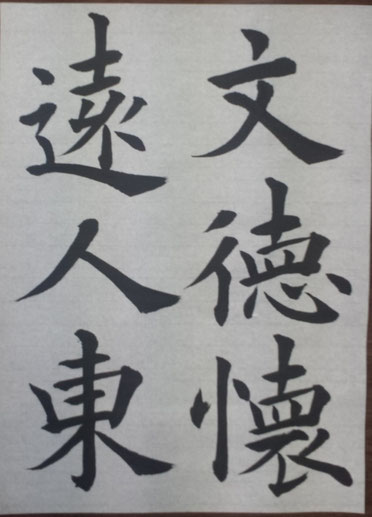 文徳懐
遠人東